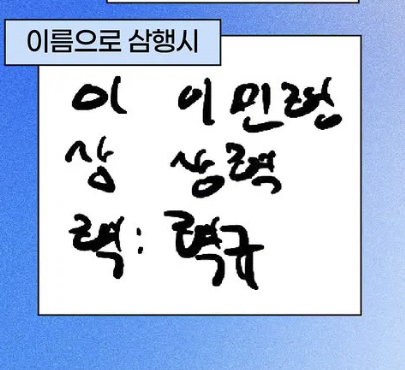 이름으로 삼행시
이 이민형
상 상혁
혁: 혁규